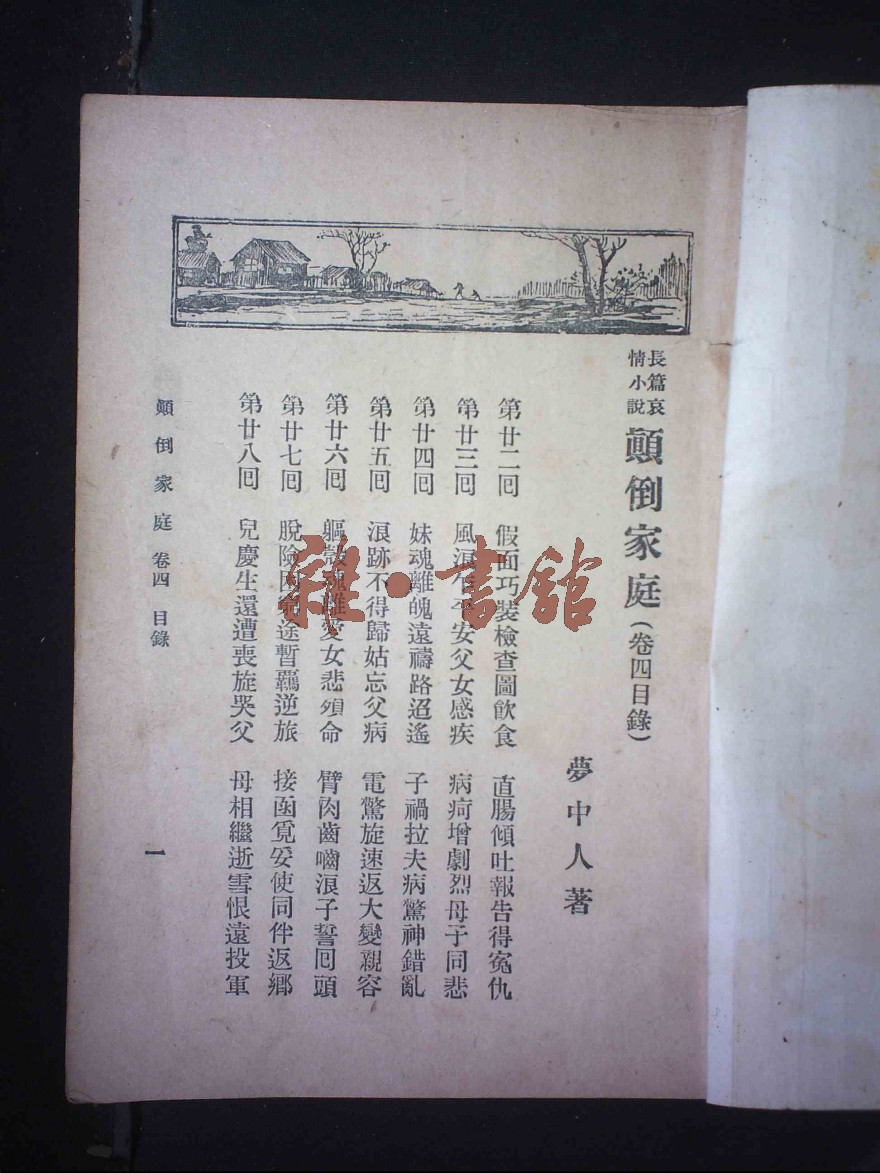 長篇哀情小說 顛倒家庭(卷四目錄)
夢中人著
第廿二回 假面巧裝檢查圖飲食 直腸傾吐報告得寃仇
第廿三回 風浪乍平安父女感疾 病疴增劇烈母子同悲
第廿四回 妹魂離魄遠禱路迢遙 子禍拉夫病驚神錯亂
第廿五回 浪跡不得歸姑忘父病 電驚旋速返大變親容
第廿六回 軀殼魂離愛女悲殞命 臂肉齒嚙浪子誓回頭
第廿七回 脫險困窮途暫羈逆旅 接函覓妥使同伴返鄉
第廿八回 兒慶生還遭喪旋哭父 母相繼逝雪恨遠投軍
顛倒家庭 卷四 目錄
一
雜·書館